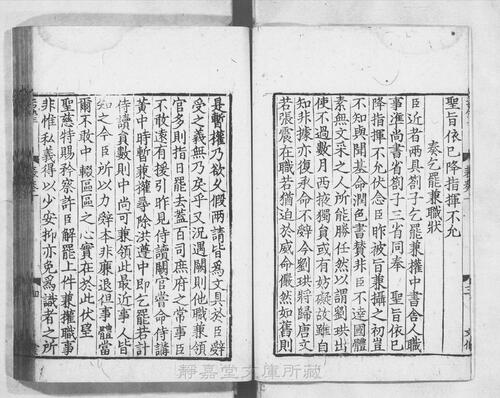 聖旨依已降指揮不允
奏乞罷兼職狀
臣近者兩具劄子乞罷兼權中書舍人職
事准尚書省劄子三省同奉　聖旨依已
降指揮不允伏念臣昨被旨兼攝之初豈
不知與聞基命潤色書贊非臣不達國體
素無文采之人所能勝任然以謂劉珙出
使不過數月西掖獨員或有妨礙故雖自
知非據亦復承命不辭今劉珙將歸唐文
若張震在職若猶迫於威命儼然如舊則
是暫權乃欲久假兩請皆爲文具於臣辭
受之義無乃矣乎又況遇闕則他職兼領
官多則指日罷去蓋百司庶府之常事臣
不敢遠有援引昨見侍讀闕官嘗命侍講
黃中時暫兼權尋除洪遵中即乞罷若計
侍讀員數則中尚可兼領此最近事人皆
知之今臣所以力辭本非廉退但事體當
爾不敢中輟區區之心實在於此伏望
聖慈特賜矜察許臣解罷上件兼權職事
非惟私義得以少安抑亦免爲識者之所
靜嘉堂文庫所藏